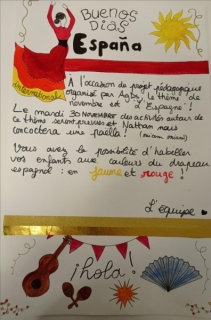 Buenos
Días
España
internationale
À l'occasion de projet pédagogique
organisé par Agby, le thème de
novembre est d'Espagne!
Le mardi 30 novembre des activités autour de
ce thème seront prévues et Nathan nous
concoctera une paëlla! (miam miam)
Vous avez la possibilité d'habiller
vos enfants aux couleurs du drapeau
espagnol: en jaune et rouge!
L'équipe
¡hola!